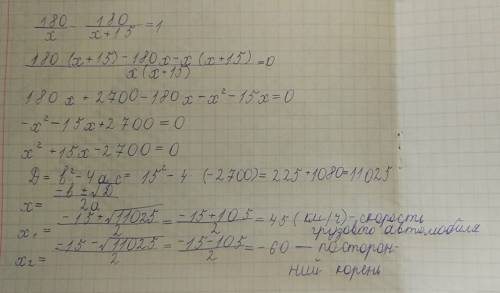 180/x - 180/(x+15) = 1
(180(x+15)-180x-x(x+15))/(x(x+15)) = 0
180x+2700-180x-x²-15x=0
-x²-15x+2700=0
x²+15x-2700=0
D=b²-4ac=15²-4·(-2700)=225+1080=11025
x=(-b±√D)/2a
x₁=(-15+√11025)/2=(-15+105)/2=45 (км/ч)-скорость
грузового автомобиля
x₂=(-15-√11025)/2=(-15-105)/2=-60 — посторон-
ний корень